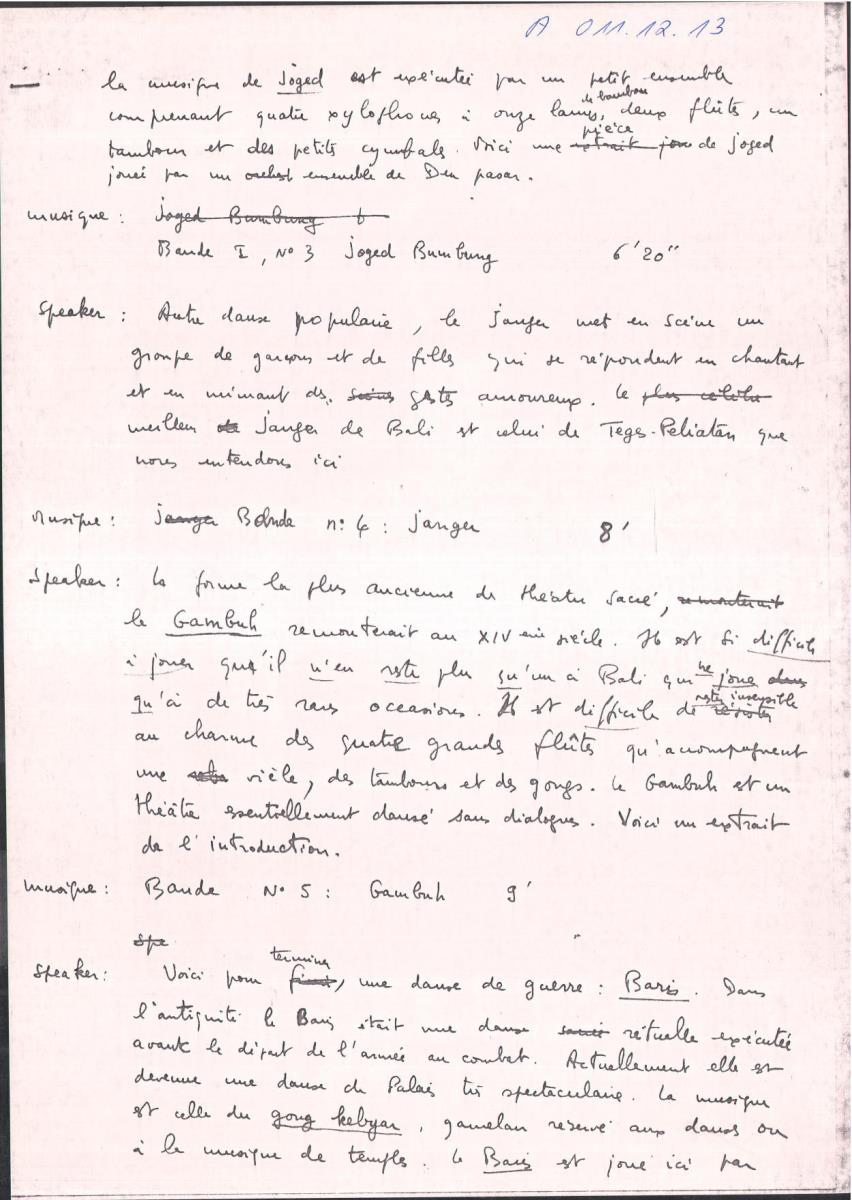 A 011.12.13
la musique de Joged est exécutée par un petit ensemble
comprenant quatre xylophones à onze lames de bambou, deux flûtes, un
tambour et des petits cymbals. Voici une extrait pièce de joged
jouée par un orchest ensemble de Den pasar.
musique : Joged Bumbung
Bande I, N° 3 Joged Bumbung 6'20"
Speaker : Autre danse populaire, le Janger met en scène un
groupe de garçons et de filles qui se répondent en chantant
et en mimant des scènes gestes amoureux. Le plus célèbre
meilleur de Janger de Bali est celui de Teges-Peliatan que
nous entendons ici
Musique : Janger Bande n° 4 : Janger 8'
Speaker : La forme la plus ancienne de théâtre sacré, remonterait
le Gambuh remonterait au XIV ème siècle. Il est si difficile
à jouer qu'il n'en reste plus qu'un à Bali qui ne joue dans
qu'à de très rares occasions. Il est difficile de résister rester insensible
au charme des quatre grandes flûtes qu'accompagnent
une vièle, des tambours et des gongs. Le Gambuh est un
théâtre essentiellement dansé sans dialogues. Voici un extrait
de l'introduction.
musique : Bande N° 5 : Gambuh 9'
Spe
Speaker : Voici pour finir terminer, une danse de guerre : Baris. Dans
l'antiquité le Baris était une danse sacrée rituelle exécutée
avant le départ de l'armée au combat. Actuellement elle est
devenue une danse de Palais très spectaculaire. La musique
est celle du gong kebyar, gamelan reservé aux danses ou
à la musique de temples. Le Baris est joué ici par